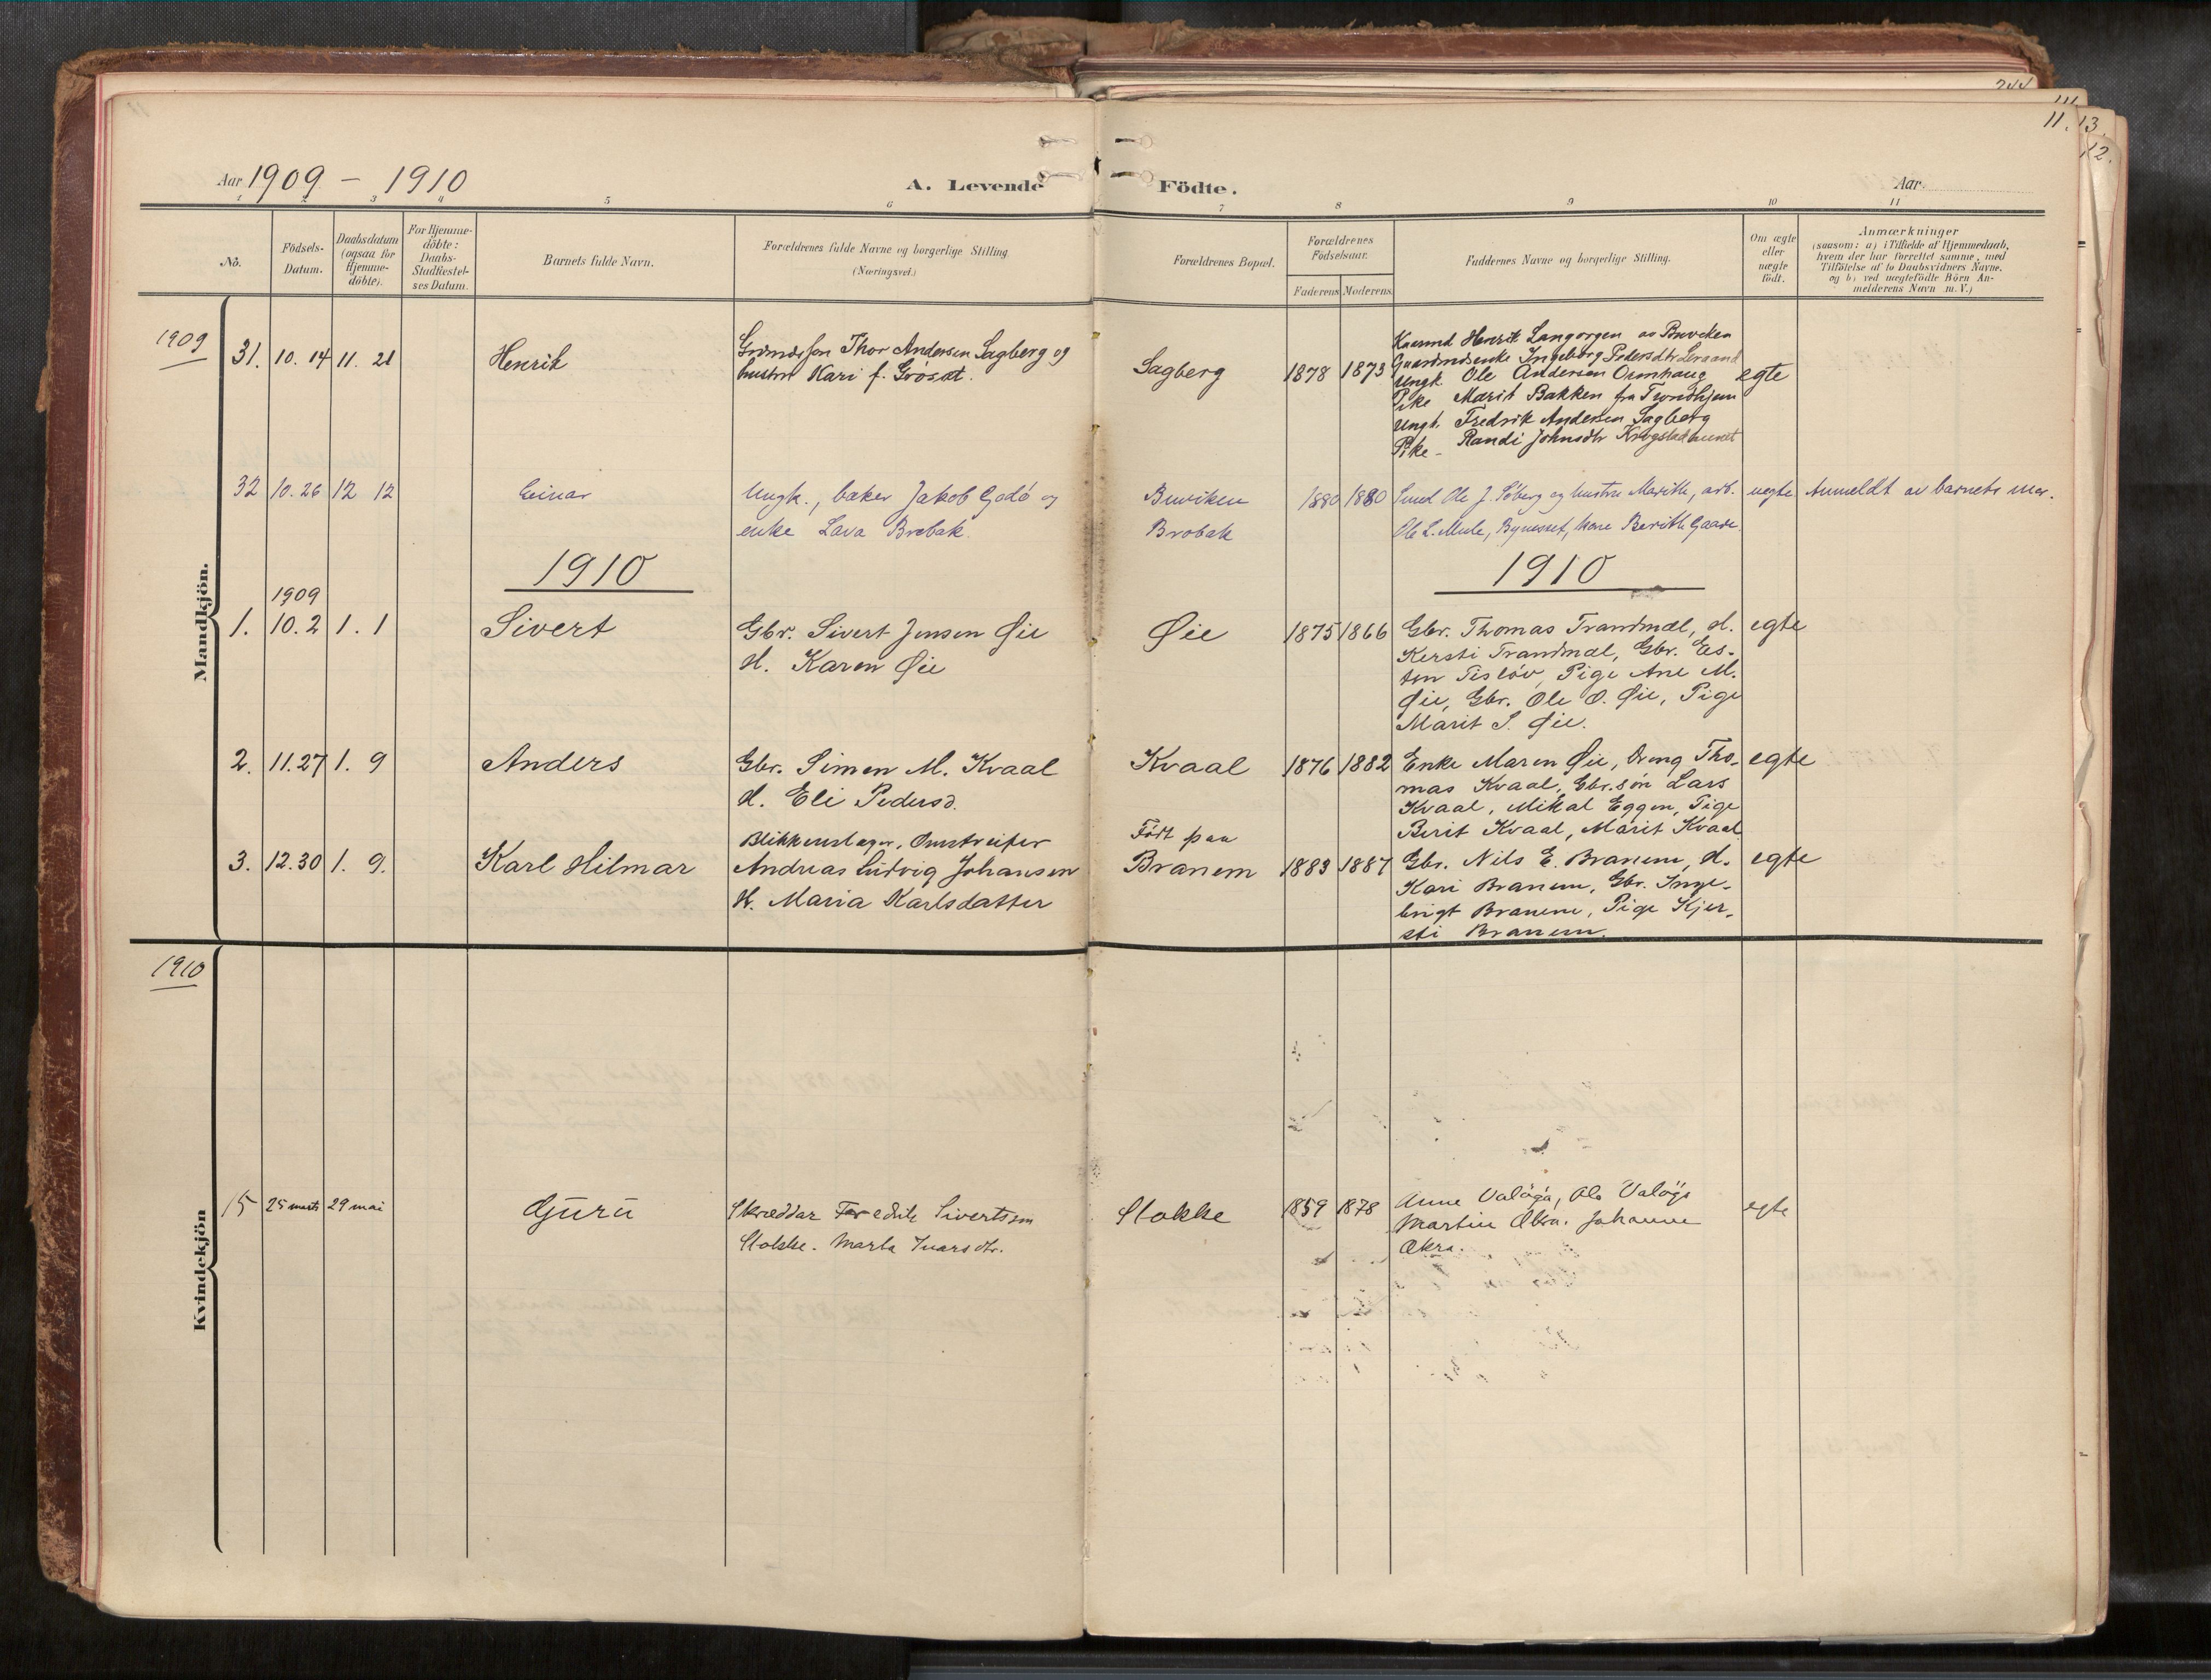 244
111
11. 13.
12.
Aar 1909 - 1910
A. Levende Födte.
Aar
1 2 3 4 5 6 7 8 9 10 11
No.
Födsels-
Datum.
Daabsdatum
(ogsaa for
Hjemme-
döbte).
For Hjemme-
döbte:
Daabs-
Stadfæstel-
ses Datum.
Barnets fulde Navn.
Forældrenes fulde Navne og borgerlige Stilling
(Næringsvei.)
Forældrenes Bopæl.
Forældrenes
Födselsaar.
Faderens Moderens.
Faddernes Navne og borgerlige Stilling.
Om ægte
eller
uægte
födt.
Anmærkninger
(saasom: a) i Tilfælde af Hjemmedaab,
hvem der har forrettet samme, med
Tilföielse af to Daabsvidners Navne.
og b) ved uægtefödte Börn An-
melderens Navn m. V.)
Mandkjön.
1909
31. 10. 14 11. 21
Henrik
Thor Andersen Sagberg og
hustru Kari f. Grösæt.
Sagberg
1878 1873
Henrik Langørgen av Buvcken
Ingeborg Pedersdtr
Ungk. Ole Andersen Ormhaug
Pike Marit Bakken fra Trondhjem
Ungk. Fredrik Andersen Sagberg
Pike - Randi Johnsdtr
egte
32 10. 26 12 12
Einar
Ungk., baker Jakob Godö og
enke Lava Brobak.
Buviken
Brobak
1880 1880
Smed Ole J. Söberg og hustru Marith, arb.
Ole L. Mule, Bynesset, kone Berith Gaare
uegte
Anmeldt av barnets mor.
1910
1910
1909
1. 10.2 1. 1
Sivert
Gbr. Sivert Jensen Øie
H. Karen Øie
Øie
1875 1866
Gbr. Thomas Trandmæl, H.
Kersti Trandmæl, Gbr. Es-
ten Tislöv, Pige Ane M.
Øie, Gbr. Ole O. Øie, Pige
Marit S. Øie.
egte
2. 11.27 1. 9
Anders
Gbr. Simen M. Kvaal
H. Eli Pedersd.
Kvaal
1876 1882
Enke Maren Øie, Dreng Tho-
mas Kvaal, Gbr.søn Lars
Kvaal, Mikal Eggen, Pige
Berit Kvaal, Marit Kvaal
egte
3. 12.30 1. 9.
Karl Hilmar
Blikkenslager, Omstreifer
Andreas Ludvig Johansen
H. Maria Karlsdatter
Født paa
Branem
1883 1887
Gbr. Nils E. Branem, H.
Kari Branem, Gbr. Inge-
brigt Branem, Pige Kjer-
sti Branem.
egte
1910
Kvindekjön
15 25 marts 29 mai
Guru
Skræddar Fredrik Sivertsen
Stokke. Marta Ivarsdtr.
Stokke
1859 1878
Anne Valöya, Ole Valöya
Martin Økra. Johanne
Økra.
egte